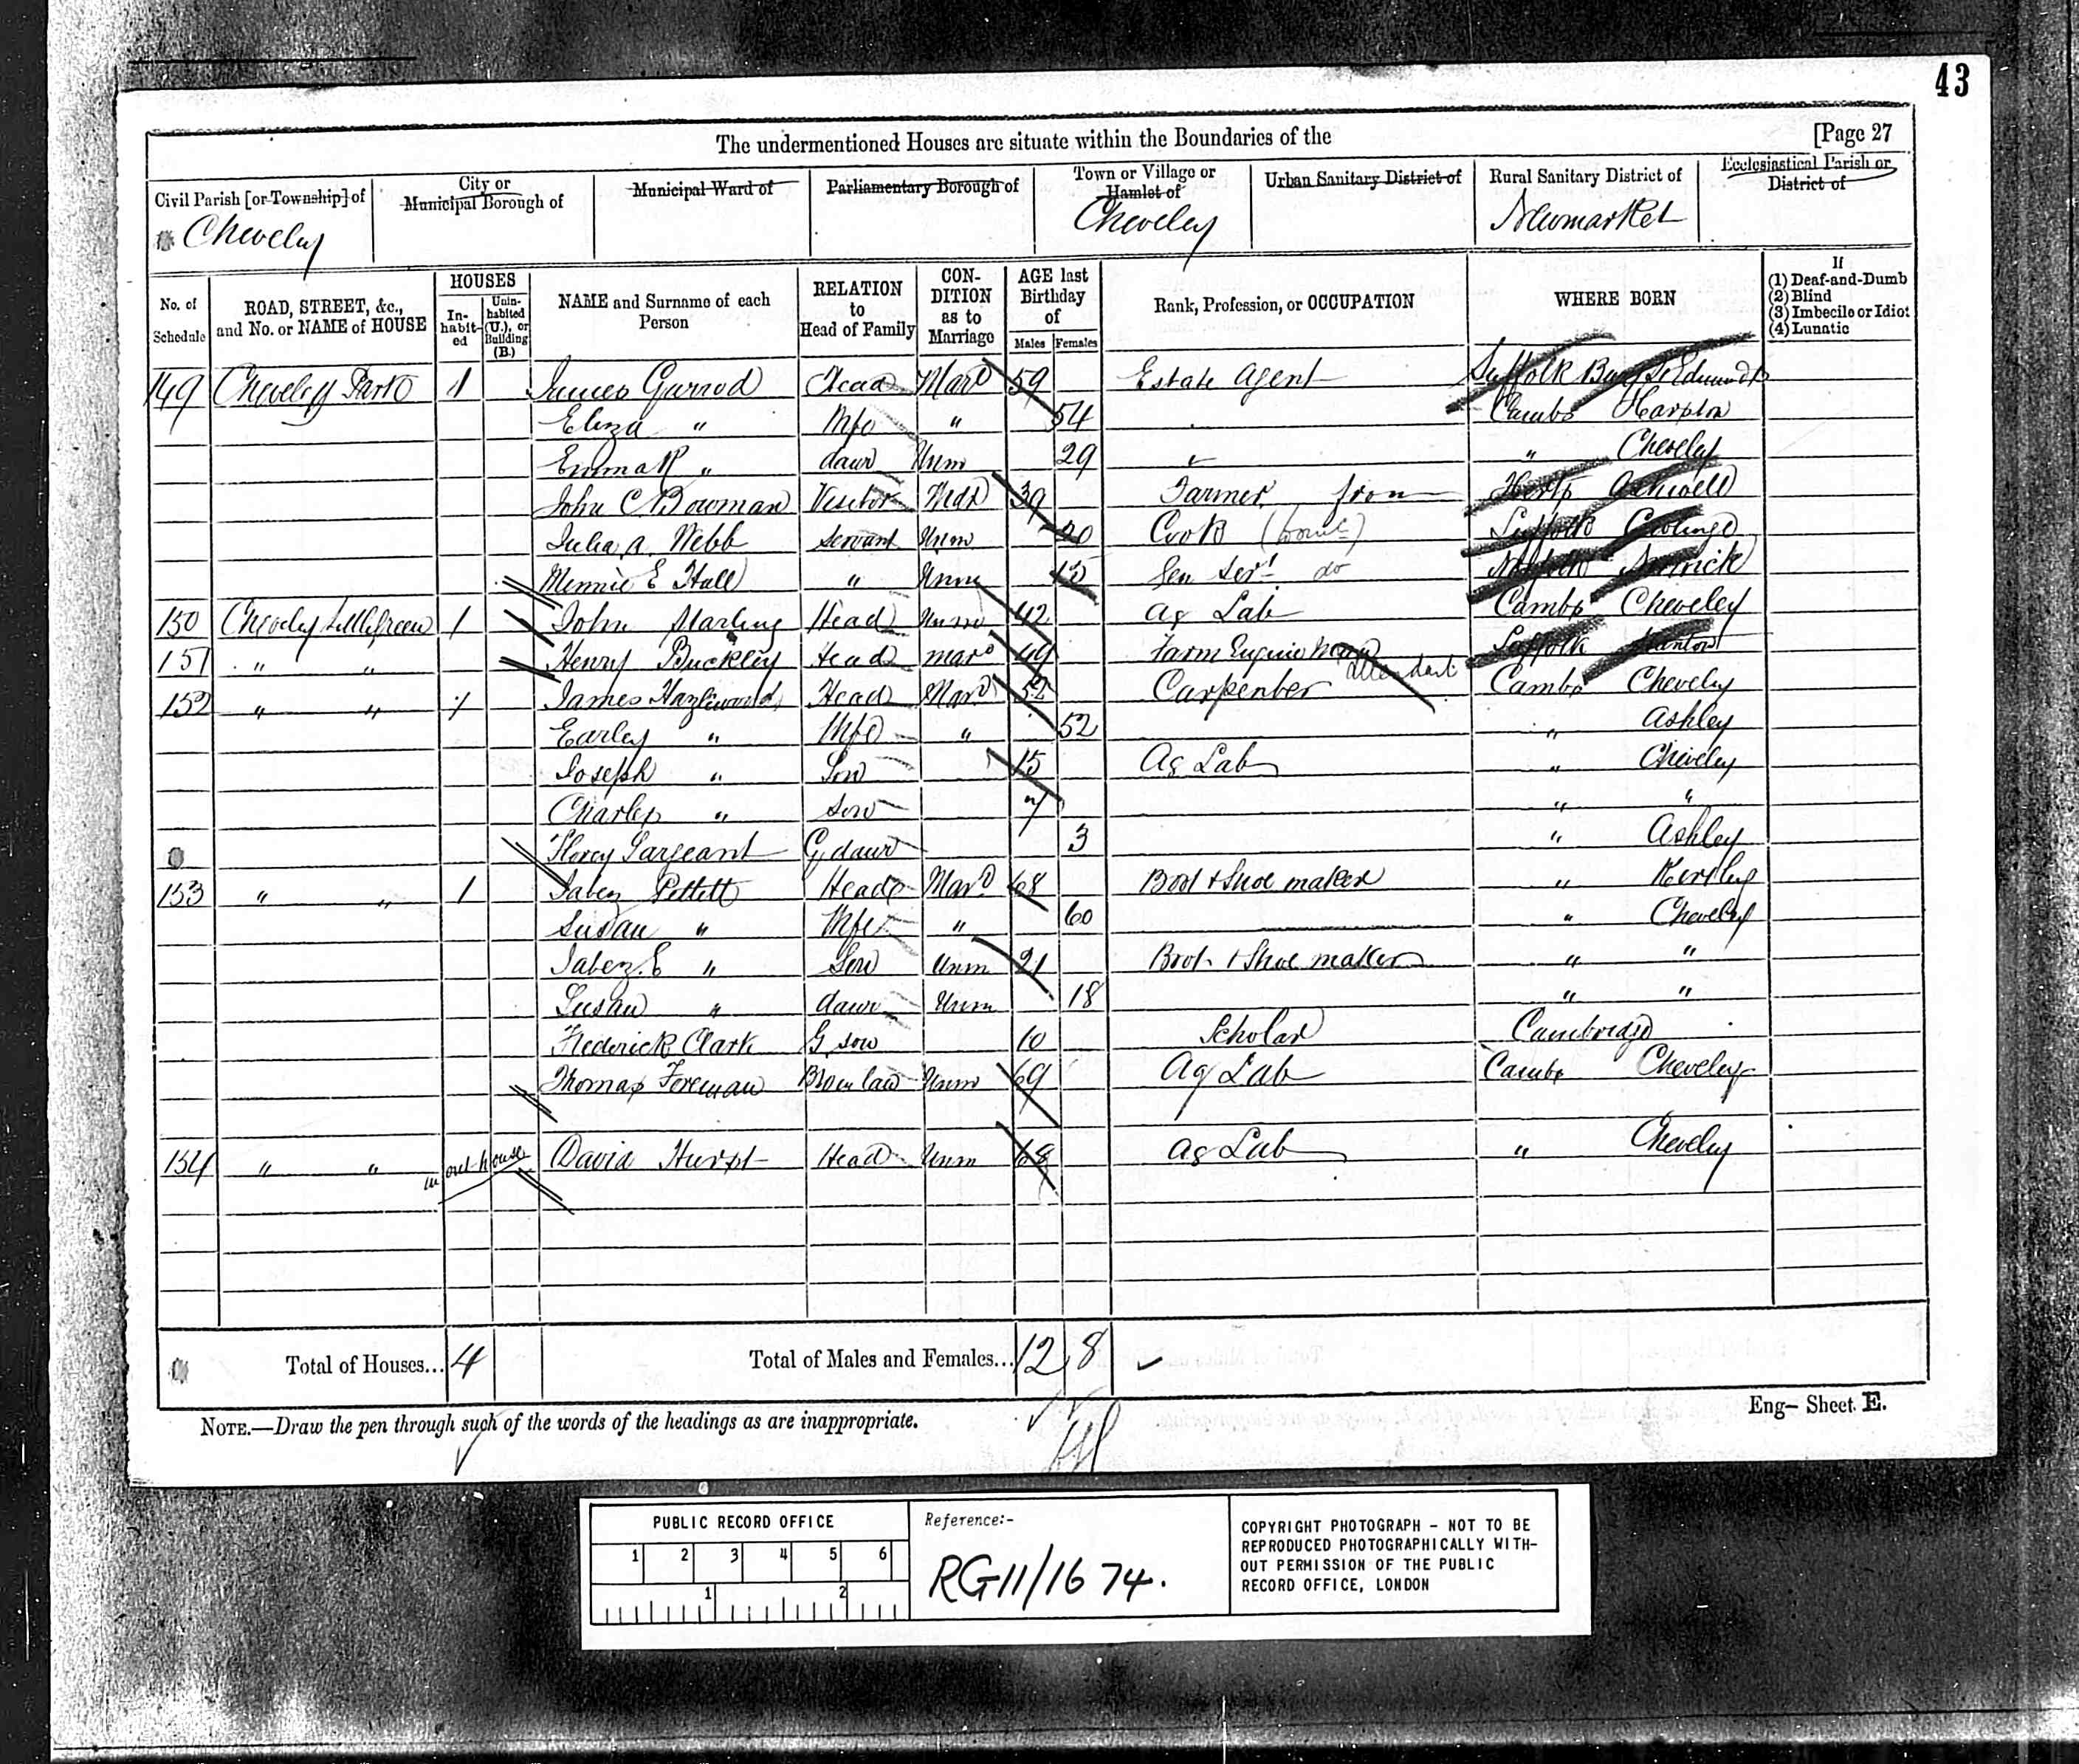 43
The undermentioned Houses are situate within the Boundaries of the [Page 27
Civil Parish [or Township] of
City or Municipal Borough of
Municipal Ward of
Parliamentary Borough of
Town or Village or Hamlet of
Urban Sanitary District of
Rural Sanitary District of
Ecclesiastical Parish or District of
Cheveley Cheveley Newmarket
No. of Schedule
ROAD, STREET, &c., and No. or NAME of HOUSE
HOUSES
In-habit-ed
Unin-habited (U.), or Building (B.)
NAME and Surname of each Person
RELATION to Head of Family
CON-DITION as to Marriage
AGE last Birthday of
Males Females
Rank, Profession, or OCCUPATION
WHERE BORN
If
(1) Deaf-and-Dumb
(2) Blind
(3) Imbecile or Idiot
(4) Lunatic
149 Cheveley Park 1 James Garrod Head Mard 59 Estate Agent Suffolk Bury St Edmunds
Eliza " Wife " 54 Cambs
Emma R " daur Unm 29 " Cheveley
John C. Bowman Visitor 39 Farmer from Herts Ashwell
Julia A. Webb Servant Unm 20 Cook Suffolk
Minnie E Hall " Unm 15 Gen Sert do Norfolk
150 Cheveley Little Green 1 John Marling Head Unm 42 Ag Lab Cambs Cheveley
151 " " Henry Buckley Head mard 49 Farm Engine attendant Suffolk
152 " " 1 James Hazlewood Head Mard 52 Carpenter Cambs Cheveley
Earley " Wife " 52 " Ashley
Joseph " Son 15 Ag Lab " Cheveley
Charles " Son 7 " "
Florey Sargeant G daur 3 " Ashley
153 " " 1 Jabez Pettett Head Mard 68 Boot & Shoe maker " Kirtley
Susan " Wife " 60 " Cheveley
Jabez E " Son Unm 21 Boot & Shoe maker " "
Susan " daur Unm 18 " "
Frederick Clark G son 10 Scholar Cambridge
Thomas Fereman Bro in law Unm 69 Ag Lab Cambs Cheveley
154 " " in out house David Hurst Head Unm 68 Ag Lab " Cheveley
Total of Houses... 4 Total of Males and Females... 12 8
NOTE.—Draw the pen through such of the words of the headings as are inappropriate.
Eng— Sheet E.
PUBLIC RECORD OFFICE
1 2 3 4 5 6
1 2
Reference:-
RG11/1674.
COPYRIGHT PHOTOGRAPH - NOT TO BE
REPRODUCED PHOTOGRAPHICALLY WITH-
OUT PERMISSION OF THE PUBLIC
RECORD OFFICE, LONDON